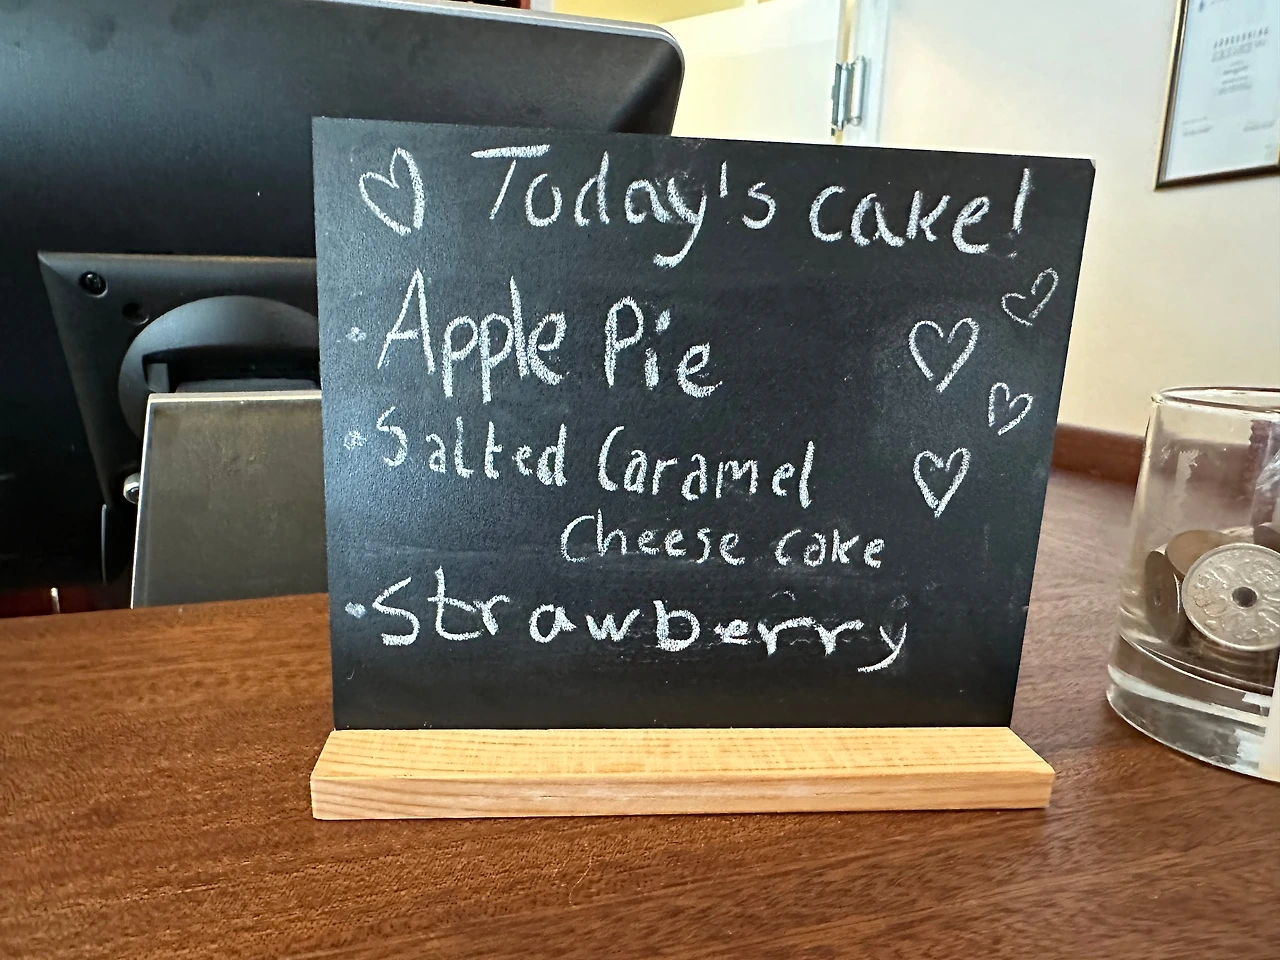 Today's cake!
· Apple Pie
· Salted Caramel
Cheese cake
· Strawberry